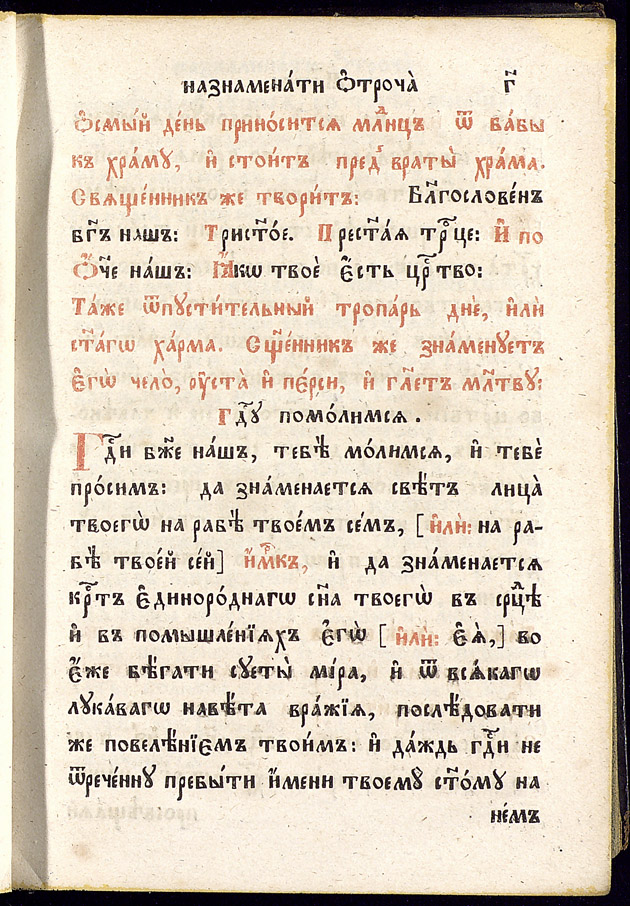 назнамена́ти Ѻ҆троча̀ г҃
Ѻ҆смы́й де́нь прино́сится мл҃днцъ ѿ ба́бы
къ хра́мꙋ, и҆ стои́тъ пред̾ враты̀ хра́ма.
Свѧще́нникъ же твори́тъ: Бл҃гослове́нъ
бг҃ъ на́шъ: Трист҃о́е. Прест҃а́ѧ трⷪ҇це: И҆ по
Ѻ҆́ч҃е на́шъ: Ꙗ҆́кѡ твоѐ є҆́сть црⷭ҇тво:
Та́же ѿпꙋсти́тельный тропа́рь днѐ, и҆лѝ
ст҃а́гѡ ха́рма. Сщ҃е́нникъ же зна́менꙋетъ
є҆гѡ̀ чело̀, ᲂу҆ста̀ и҆ пе́рси, и҆ гл҃етъ мл҃твꙋ:
гдⷭ҇ꙋ помо́лимсѧ.
Гдⷭ҇и бж҃е на́шъ, тебѣ̀ мо́лимсѧ, и҆ тебѐ
про́симъ: да зна́менаетсѧ свѣ́тъ лица̀
твоегѡ̀ на рабѣ̀ твое́мъ се́мъ, [и҆лѝ: на ра-
бѣ̀ твое́й се́й] и҆́мⷬ҇къ, и҆ да зна́менаетсѧ
крⷭ҇тъ є҆диноро́днагѡ сн҃а твоегѡ̀ въ срⷣцѣ
и҆ въ помышле́нїѧхъ є҆гѡ̀ [и҆лѝ: є҆ѧ̀,] во
є҆́же бѣ́гати сꙋеты̀ мі́ра, и҆ ѿ всѧ́кагѡ
лꙋка́вагѡ навѣ́та вра́жїѧ, послѣ́довати
же повелѣ́нїємъ твои̑мъ: и҆ да́ждь гдⷭ҇и не
ѿрече́ннꙋ пребы́ти и҆́мени твоемꙋ̀ ст҃о́мꙋ на
не́мъ